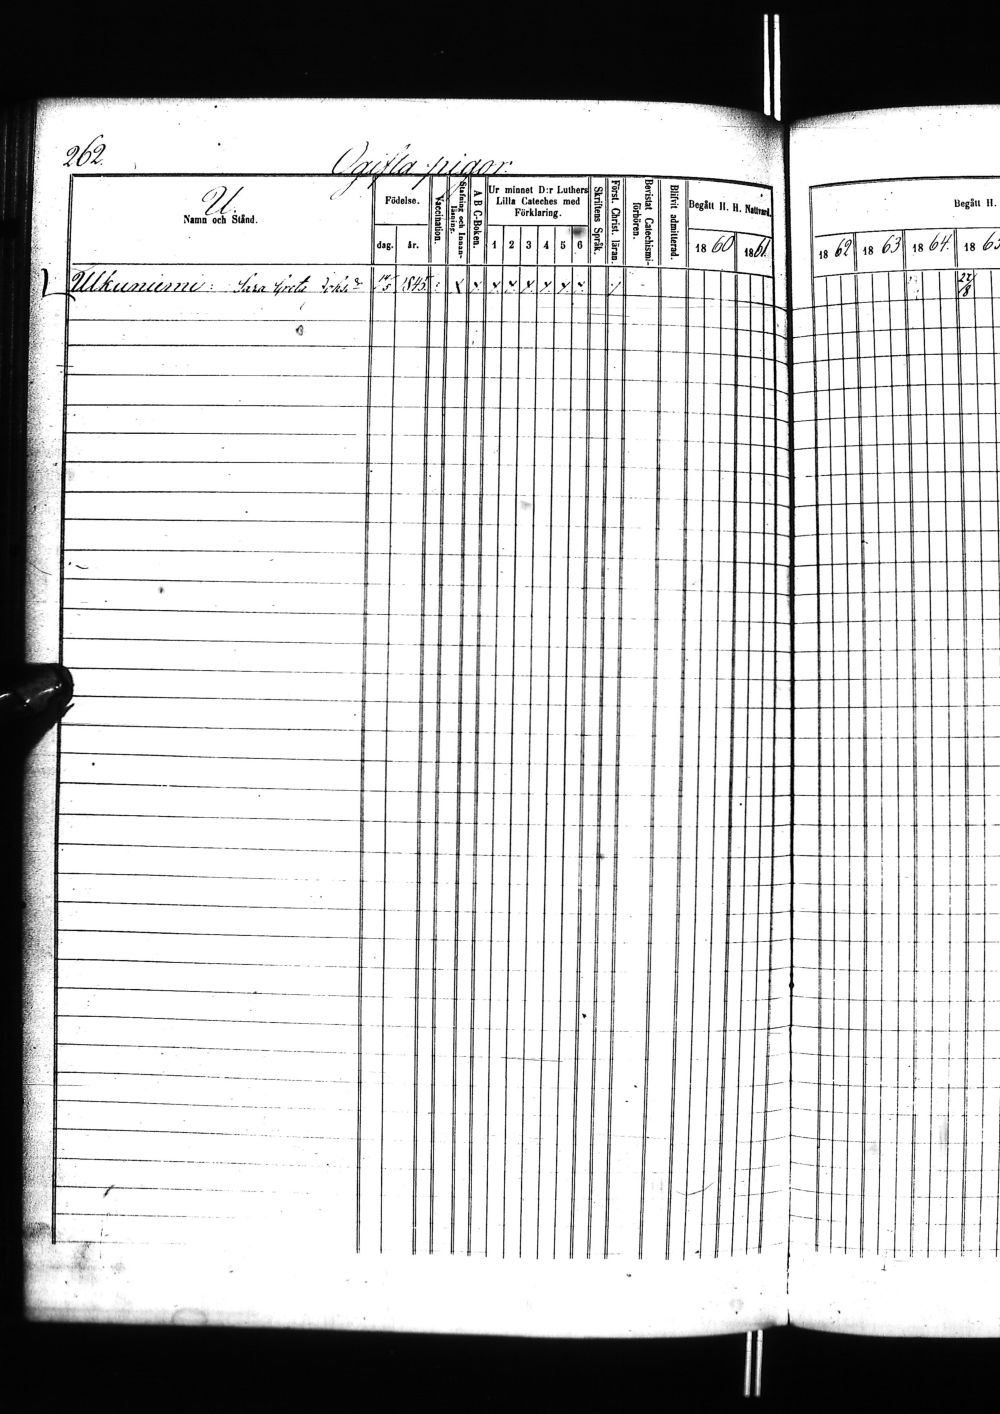 262.
Ogifta pigor.
U.
Namn och Stånd.
Födelse.
dag.
år.
Vaccination.
Stafning och Innan-
läsning.
A B C-Boken.
Ur minnet D:r Luthers
Lilla Cateches med
Förklaring.
1 2 3 4 5 6
Skriftens Språk.
Först. Christ. läran.
Bevistat Catechismi-
förhören.
Blifvit admitterad.
Begått H. H. Nattvard.
1860 1861.
Begått H.
1862 1863 1864. 1865
Ulkuniemi: Sara Greta Johsdr 1845.
22/8